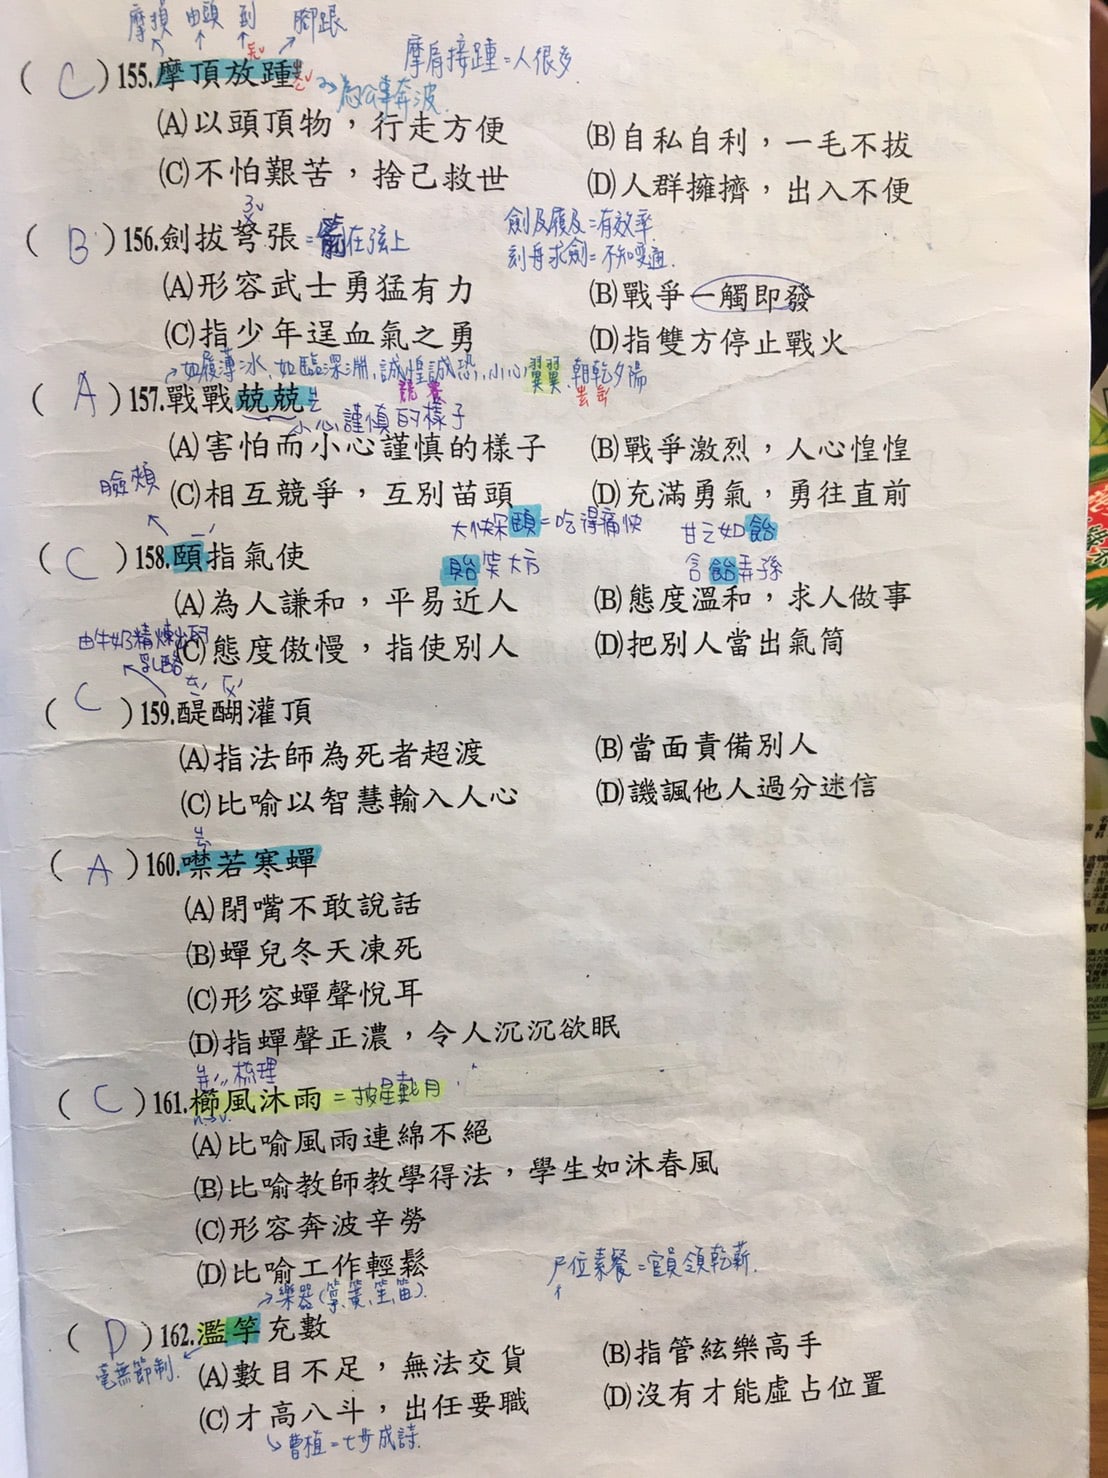 摩損 由頭 到 腳跟
摩肩接踵=人很多
(C)155.摩頂放踵
為公事奔波
(A)以頭頂物，行走方便 (B)自私自利，一毛不拔
(C)不怕艱苦，捨己救世 (D)人群擁擠，出入不便
劍及履及=有效率
ㄋㄨˇ
(B)156.劍拔弩張=箭在弦上
刻舟求劍=不知變通.
(A)形容武士勇猛有力 (B)戰爭一觸即發
(C)指少年逞血氣之勇 (D)指雙方停止戰火
如履薄冰,如臨深淵,誠惶誠恐,小心翼翼.朝乾夕陽
(A)157.戰戰兢兢
小心謹慎的樣子
(A)害怕而小心謹慎的樣子 (B)戰爭激烈，人心惶惶
臉頰
(C)相互競爭，互別苗頭 (D)充滿勇氣，勇往直前
大快朵頤=吃得痛快 甘之如飴
(C)158.頤指氣使
貽笑大方 含飴弄孫
(A)為人謙和，平易近人 (B)態度溫和，求人做事
由牛奶精煉出的乳酪
(C)態度傲慢，指使別人 (D)把別人當出氣筒
ㄊㄧˊ ㄏㄨˊ
(C)159.醍醐灌頂
(A)指法師為死者超渡 (B)當面責備別人
(C)比喻以智慧輸入人心 (D)譏諷他人過分迷信
(A)160.噤若寒蟬
(A)閉嘴不敢說話
(B)蟬兒冬天凍死
(C)形容蟬聲悅耳
(D)指蟬聲正濃，令人沉沉欲眠
梳理
(C)161.櫛風沐雨=披星戴月
(A)比喻風雨連綿不絕
(B)比喻教師教學得法，學生如沐春風
(C)形容奔波辛勞
(D)比喻工作輕鬆
尸位素餐=官員領乾薪.
樂器(箏,簧,笙,笛).
(D)162.濫竽充數
毫無節制.
(A)數目不足，無法交貨 (B)指管絃樂高手
(C)才高八斗，出任要職 (D)沒有才能虛占位置
曹植=七步成詩.